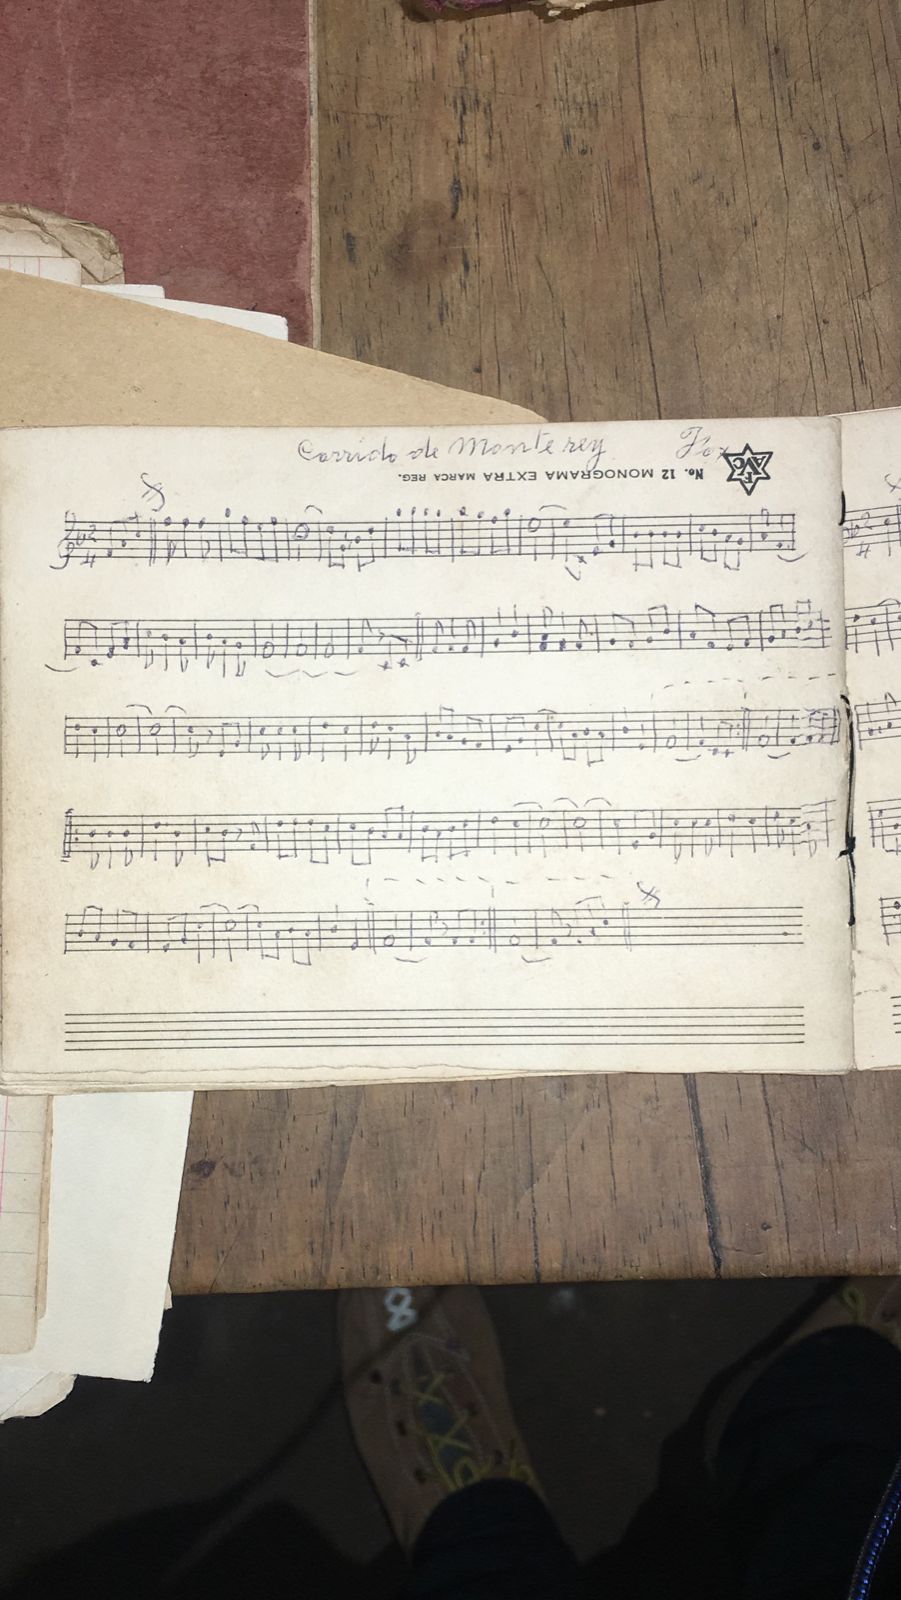 Corrido de Monterey Fox
No. 12 MONOGRAMA EXTRA MARCA REG.
F
AVC
2
4
2
4
8